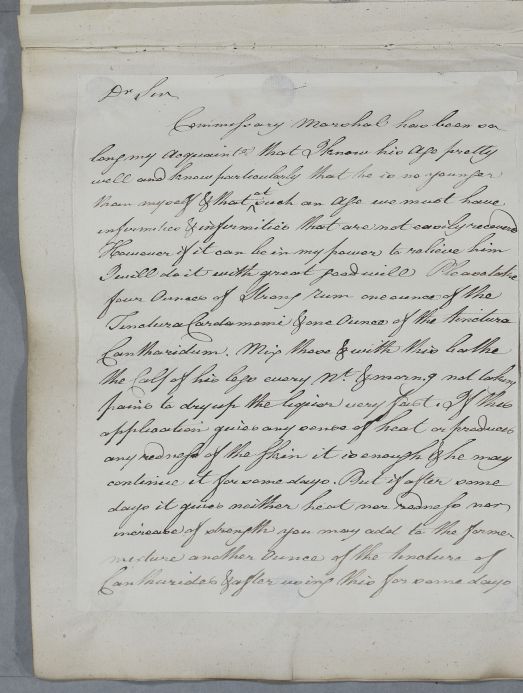 Dr Sir
Commissary Marshal has been so
long my Acquaintce that I know his Age pretty
well and know particularly that he is no younger
than myself & that at such an Age we must have
infirmities & infirmities that are not easily recoverd
However if it can be in my power to relieve him
I will do it with great good will Please take
four Ounces of Strong rum one ounce of the
Tinctura Cardamomi & one Ounce of the tinctura
Cantharidum. Mix these & with this bathe
the Calf of his legs every Nt. & morng not taking
pains to dry up the liquor very fast. If this
application gives any sense of heat or produces
any redness of the skin it is enough & he may
continue it for some days. But if after some
days it gives neither heat nor redness nor
increase of strength you may add to the former
mixture another Ounce of the tincture of
Cantharides & after using this for some days